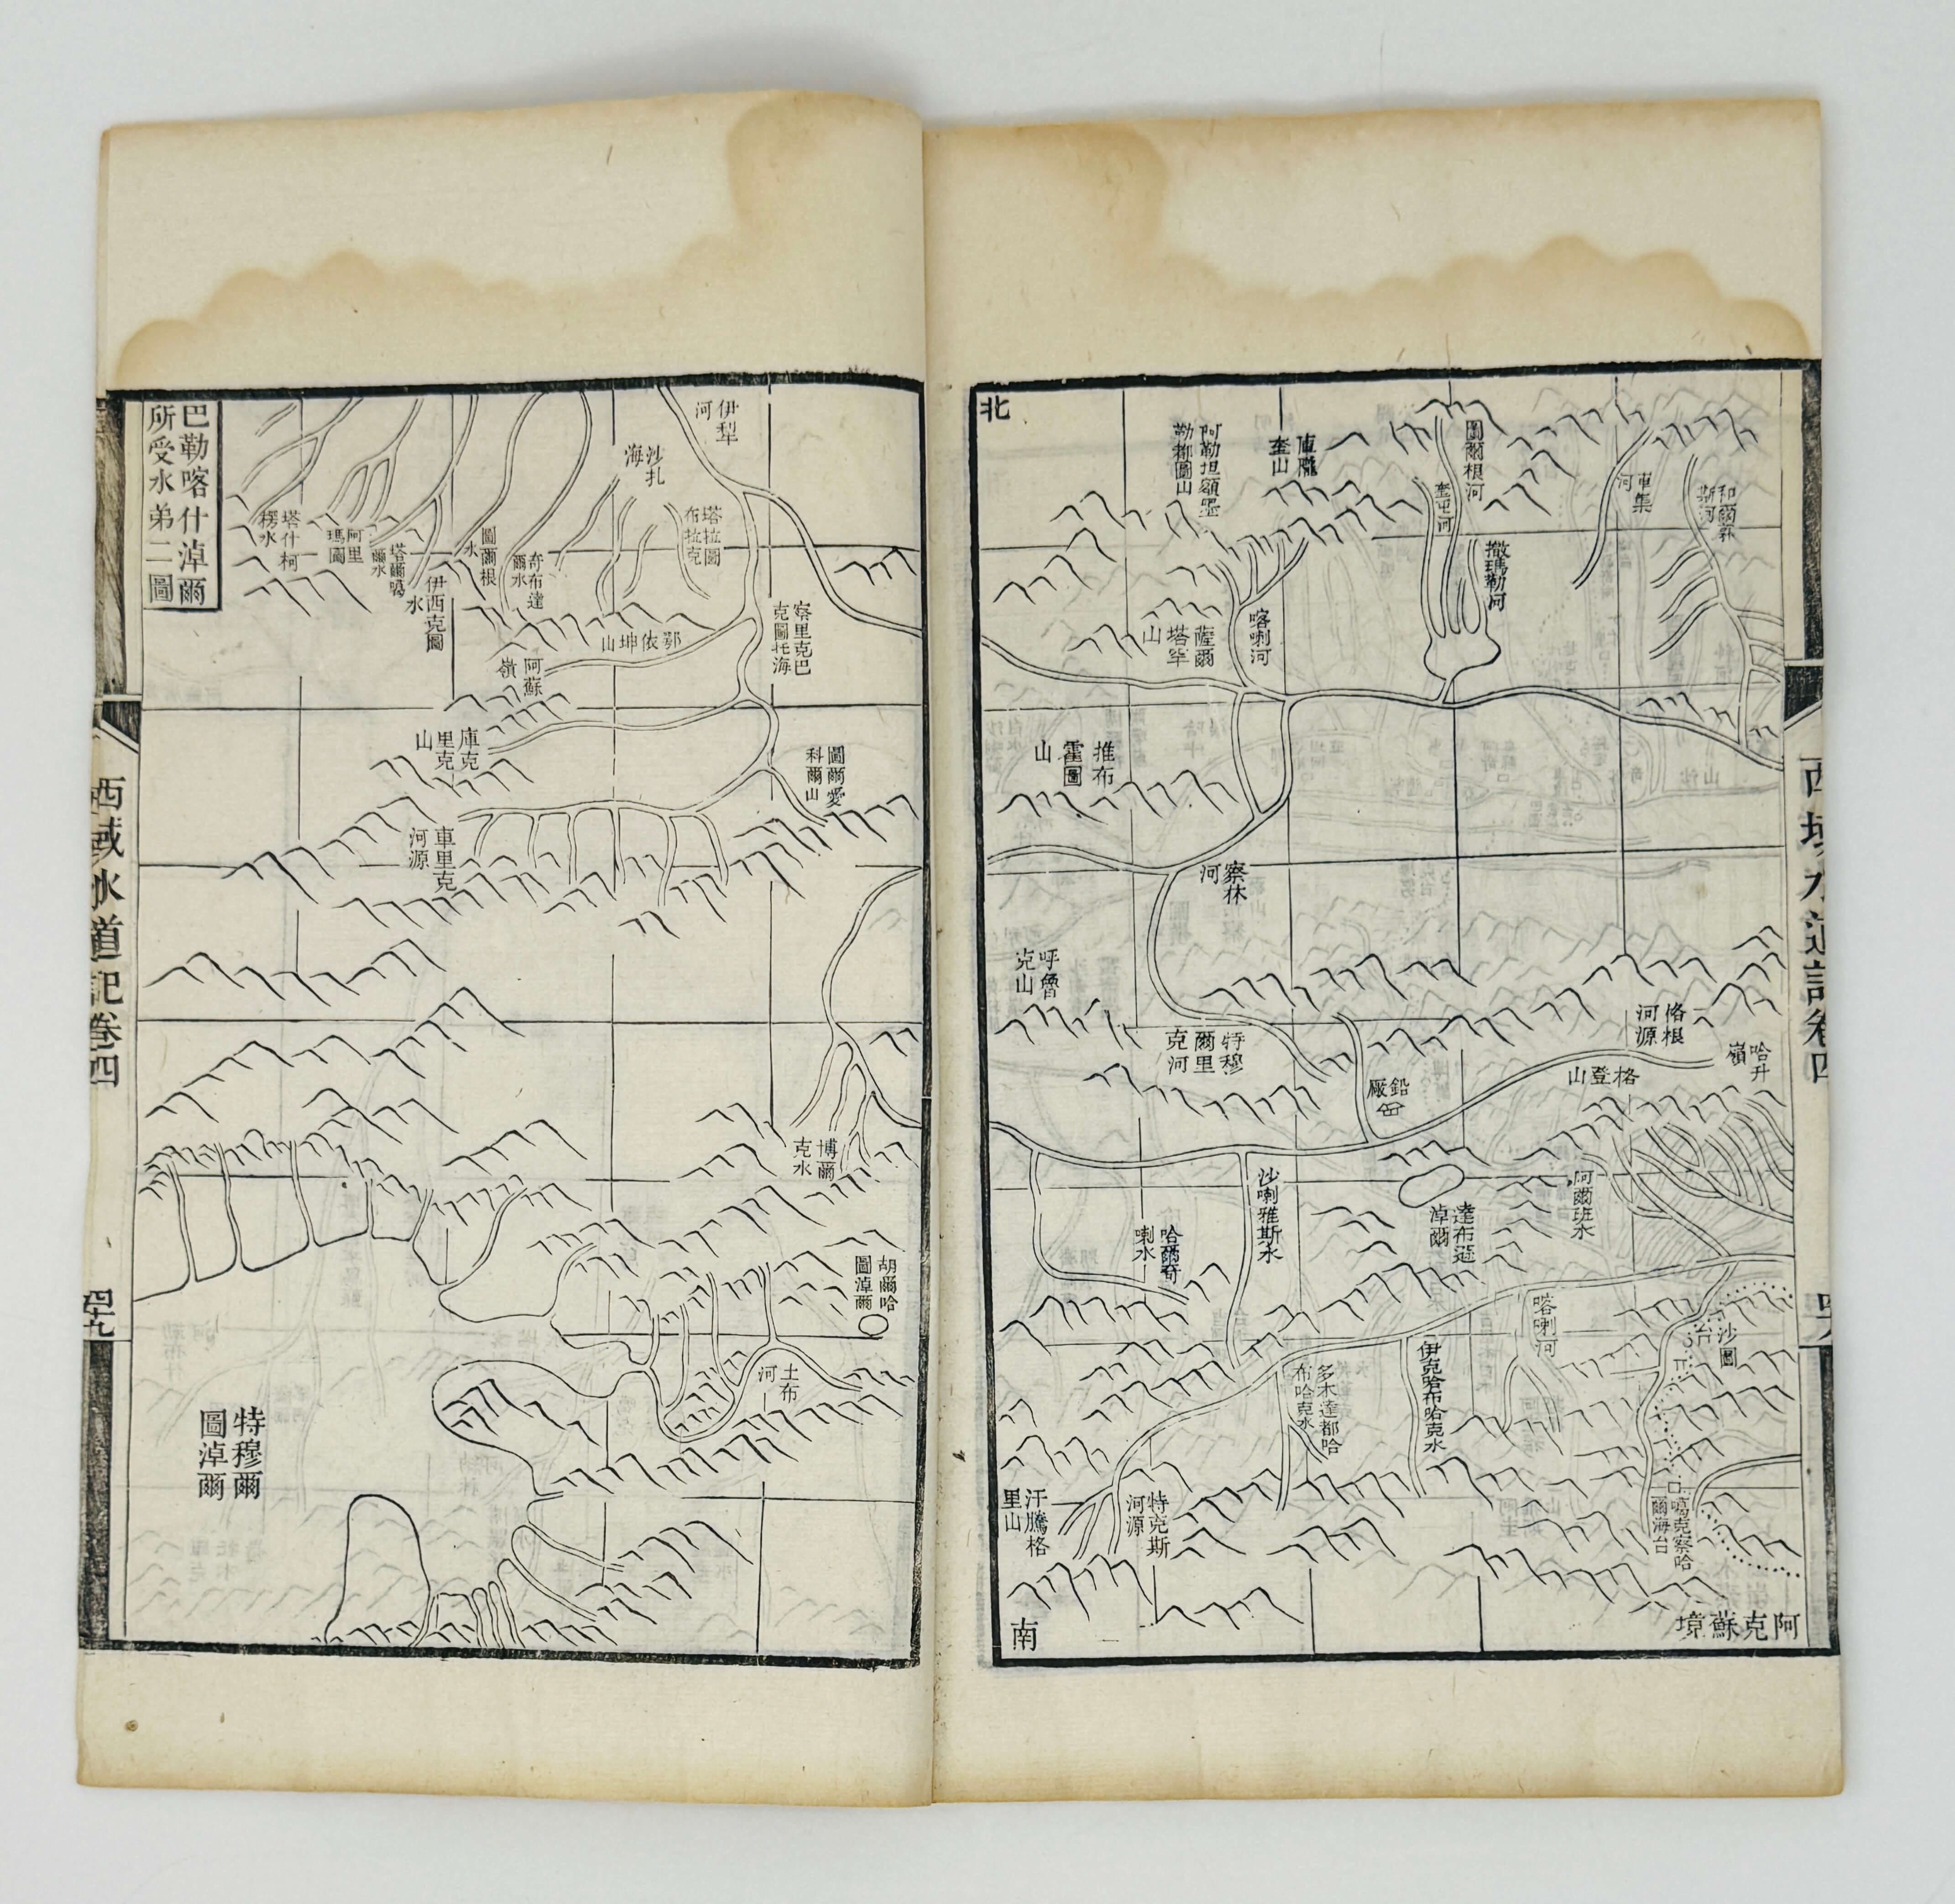 北
和爾郭斯河
車集河
圖爾根河
奎屯河
撒瑪勒河
庫隴奎山
阿勒坦額墨勒柳圖山
喀喇河
薩爾塔罕山
推布霍圖山
察林河
呼魯克山
特穆爾里克河
鉛廠
格根河源
哈升嶺
格登山
阿爾班水
達布遜淖爾
沙喇雅斯水
哈爾奇喇水
沙圖台
喀喇河
伊克哈布哈克水
多木達都哈布哈克水
特克斯河源
汗騰格里山
噶克察哈爾海台
阿克蘇境
南
西域水道記卷四
伊犁河
沙扎海
塔拉圖布拉克
察里克巴克圖托海
鄂依坤山
阿蘇嶺
奇布達爾水
圖爾根水
伊西克圖水
塔爾噶爾水
阿里瑪圖
塔什柯楞水
巴勒喀什淖爾
所受水弟二圖
庫克里克山
圖爾愛科爾山
車里克河源
博爾克水
胡爾哈圖淖爾
土布河
特穆爾圖淖爾
西域水道記卷四
四十九